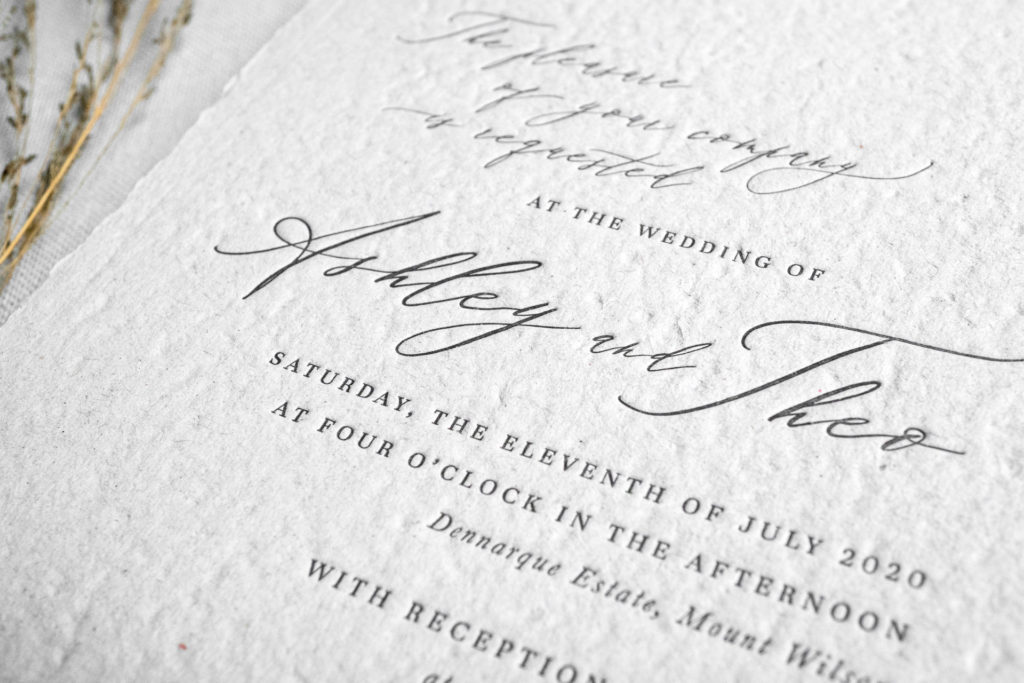 The pleasure
of your company
is requested
AT THE WEDDING OF
Ashley and Theo
SATURDAY, THE ELEVENTH OF JULY 2020
AT FOUR O'CLOCK IN THE AFTERNOON
Dennarque Estate, Mount Wilson
WITH RECEPTION